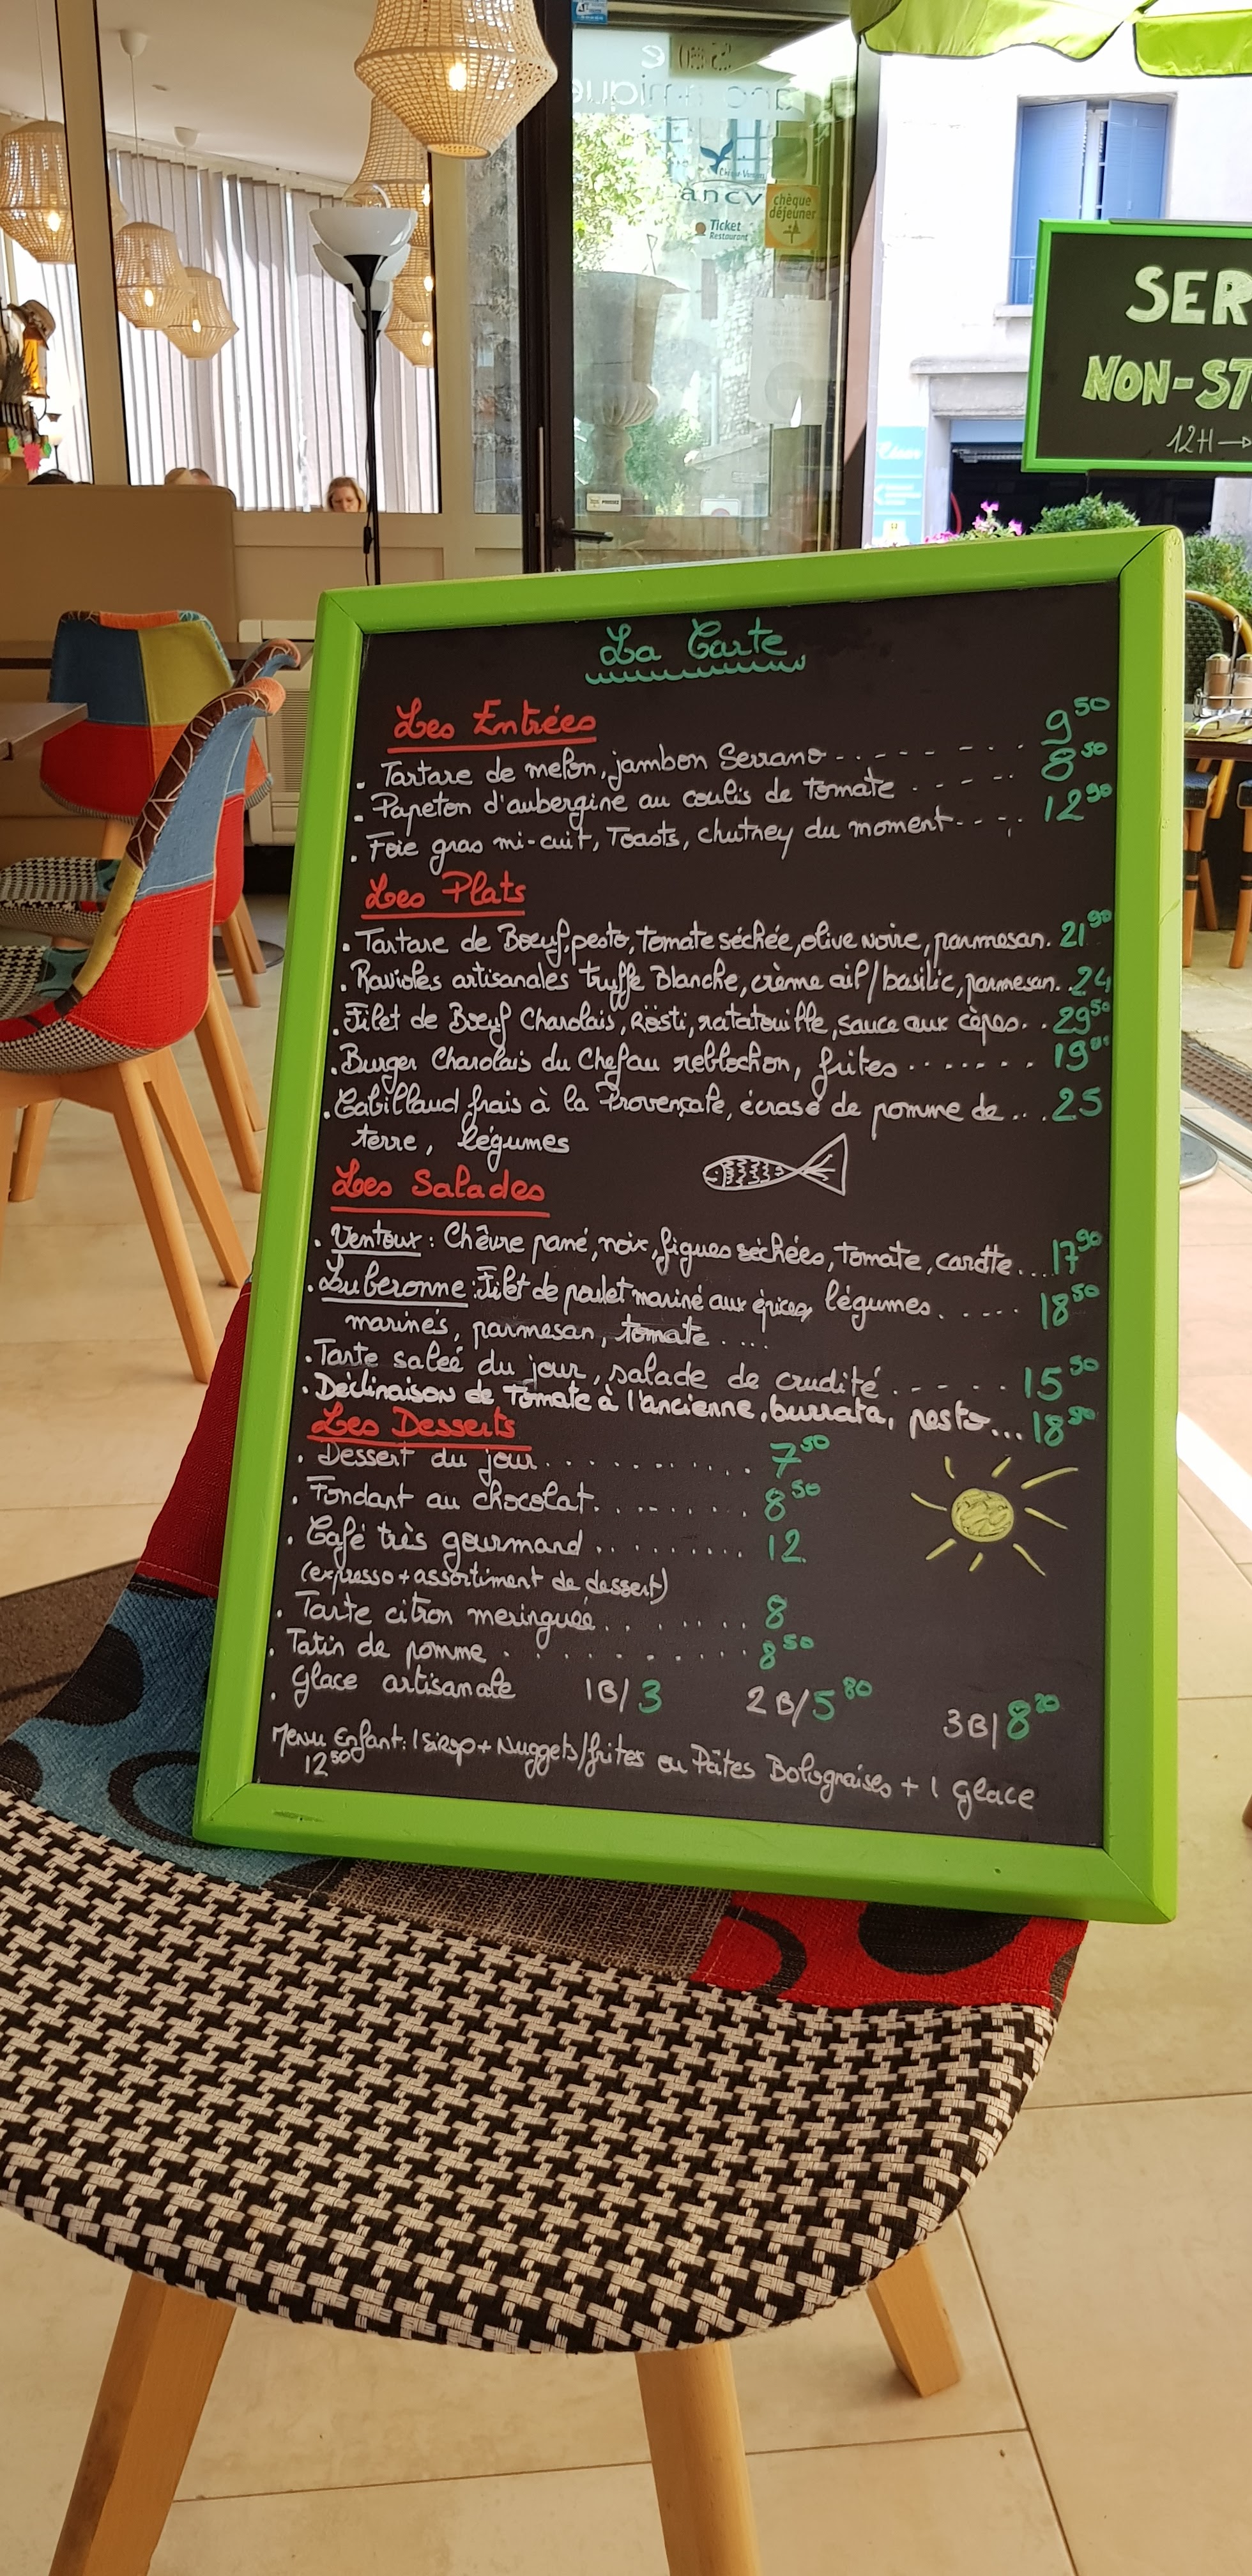 Chèque Vacances
ancv
Ticket
Restaurant
chèque
déjeuner
SER
NON-STO
12H→
La Carte
Les Entrées
. Tartare de melon, jambon Serrano 9 50
. Papeton d'aubergine au coulis de tomate 8 50
. Foie gras mi-cuit, Toasts, chutney du moment 12 90
Les Plats
. Tartare de Bœuf, pesto, tomate séchée, olive noire, parmesan. 21 90
. Ravioles artisanales truffe Blanche, crème ail/basilic, parmesan. 24
. Filet de Bœuf Charolais, Rösti, ratatouille, sauce aux cèpes. 29 50
. Burger Charolais du Chef au reblochon, frites 19
. Cabillaud frais à la Provençale, écrasé de pomme de 25
terre, légumes
Les Salades
. Ventoux : Chèvre pané, noix, figues séchées, tomate, carotte... 17 90
. Luberonne : Filet de poulet mariné aux épices, légumes 18 50
marinés, parmesan, tomate ....
. Tarte saleé du jour, salade de crudité 15 50
. Déclinaison de Tomate à l'ancienne, burrata, pesto... 18 90
Les Desserts
. Dessert du jour 7 50
. Fondant au chocolat 8 50
. Café très gourmand 12
(expresso + assortiment de dessert)
. Tarte citron meringuée 8
. Tatin de pomme 8 50
. Glace artisanale 1B/3 2B/5 80 3B/8 20
Menu Enfant: 1 sirop + Nuggets/frites ou Pâtes Bolognaises + 1 glace
12 50